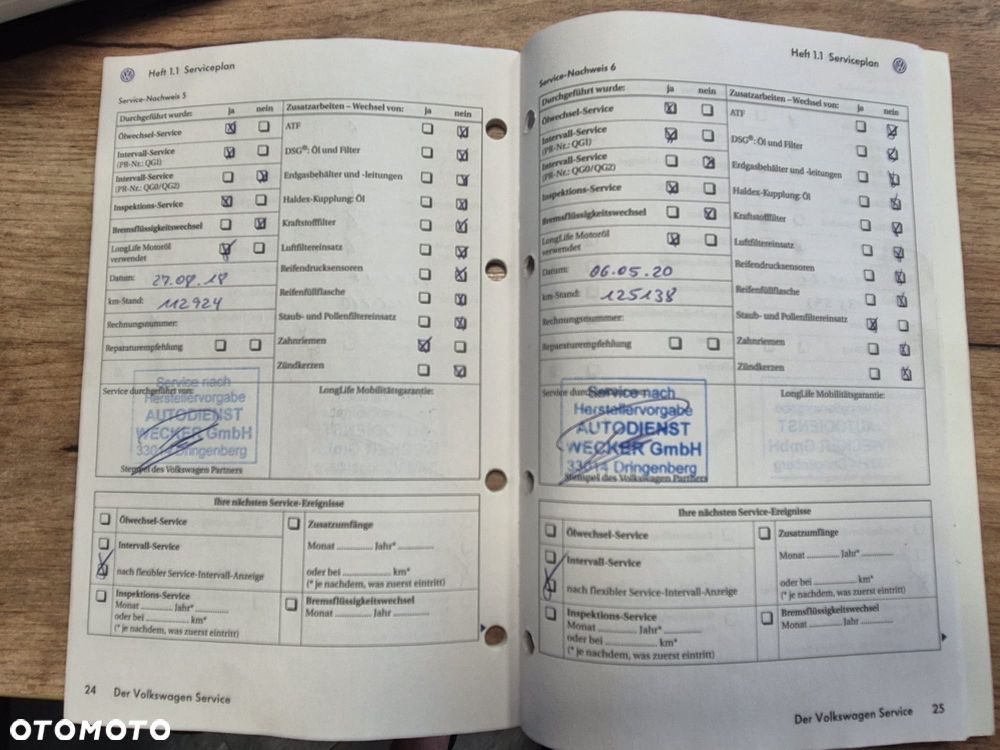 Heft 1.1 Serviceplan
Service-Nachweis 5
Durchgeführt wurde: ja nein
Ölwechsel-Service
Intervall-Service
(PR-Nr.: QG1)
Intervall-Service
(PR-Nr.: QG0/QG2)
Inspektions-Service
Bremsflüssigkeitswechsel
LongLife Motoröl
verwendet
Datum: 27.08.18
km-Stand: 112924
Rechnungsnummer:
Reparaturempfehlung
Zusatzarbeiten – Wechsel von: ja nein
ATF
DSG®: Öl und Filter
Erdgasbehälter und -leitungen
Haldex-Kupplung: Öl
Kraftstofffilter
Luftfiltereinsatz
Reifendrucksensoren
Reifenfüllflasche
Staub- und Pollenfiltereinsatz
Zahnriemen
Zündkerzen
Service durchgeführt von:
Service nach
Herstellervorgabe
AUTODIENST
WECKER GmbH
33014 Dringenberg
Stempel des Volkswagen Partners
LongLife Mobilitätsgarantie:
Ihre nächsten Service-Ereignisse
Ölwechsel-Service
Intervall-Service
nach flexibler Service-Intervall-Anzeige
Inspektions-Service
Monat ............ Jahr* ............
oder bei ............ km*
(* je nachdem, was zuerst eintritt)
Zusatzumfänge
Monat ............ Jahr* ............
oder bei ............ km*
(* je nachdem, was zuerst eintritt)
Bremsflüssigkeitswechsel
Monat ............ Jahr ............
24 Der Volkswagen Service
Heft 1.1 Serviceplan
Service-Nachweis 6
Durchgeführt wurde: ja nein
Ölwechsel-Service
Intervall-Service
(PR-Nr.: QG1)
Intervall-Service
(PR-Nr.: QG0/QG2)
Inspektions-Service
Bremsflüssigkeitswechsel
LongLife Motoröl
verwendet
Datum: 06.05.20
km-Stand: 125138
Rechnungsnummer:
Reparaturempfehlung
Zusatzarbeiten – Wechsel von: ja nein
ATF
DSG®: Öl und Filter
Erdgasbehälter und -leitungen
Haldex-Kupplung: Öl
Kraftstofffilter
Luftfiltereinsatz
Reifendrucksensoren
Reifenfüllflasche
Staub- und Pollenfiltereinsatz
Zahnriemen
Zündkerzen
Service durchgeführt von:
Service nach
Herstellervorgabe
AUTODIENST
WECKER GmbH
33014 Dringenberg
Stempel des Volkswagen Partners
LongLife Mobilitätsgarantie:
Ihre nächsten Service-Ereignisse
Ölwechsel-Service
Intervall-Service
nach flexibler Service-Intervall-Anzeige
Inspektions-Service
Monat ............ Jahr* ............
oder bei ............ km*
(* je nachdem, was zuerst eintritt)
Zusatzumfänge
Monat ............ Jahr* ............
oder bei ............ km*
(* je nachdem, was zuerst eintritt)
Bremsflüssigkeitswechsel
Monat ............ Jahr ............
Der Volkswagen Service 25
OTOMOTO